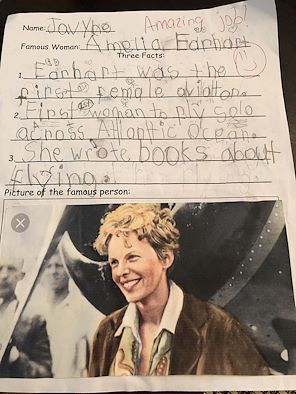 Name: Jayvhn Amazing job!
Famous Woman: Amelia Earhart
Three Facts:
1. Earhart was the
first female aviator.
2. First woman to fly solo
across Atlantic Ocean.
3. She wrote books about
flying.
Picture of the famous person: